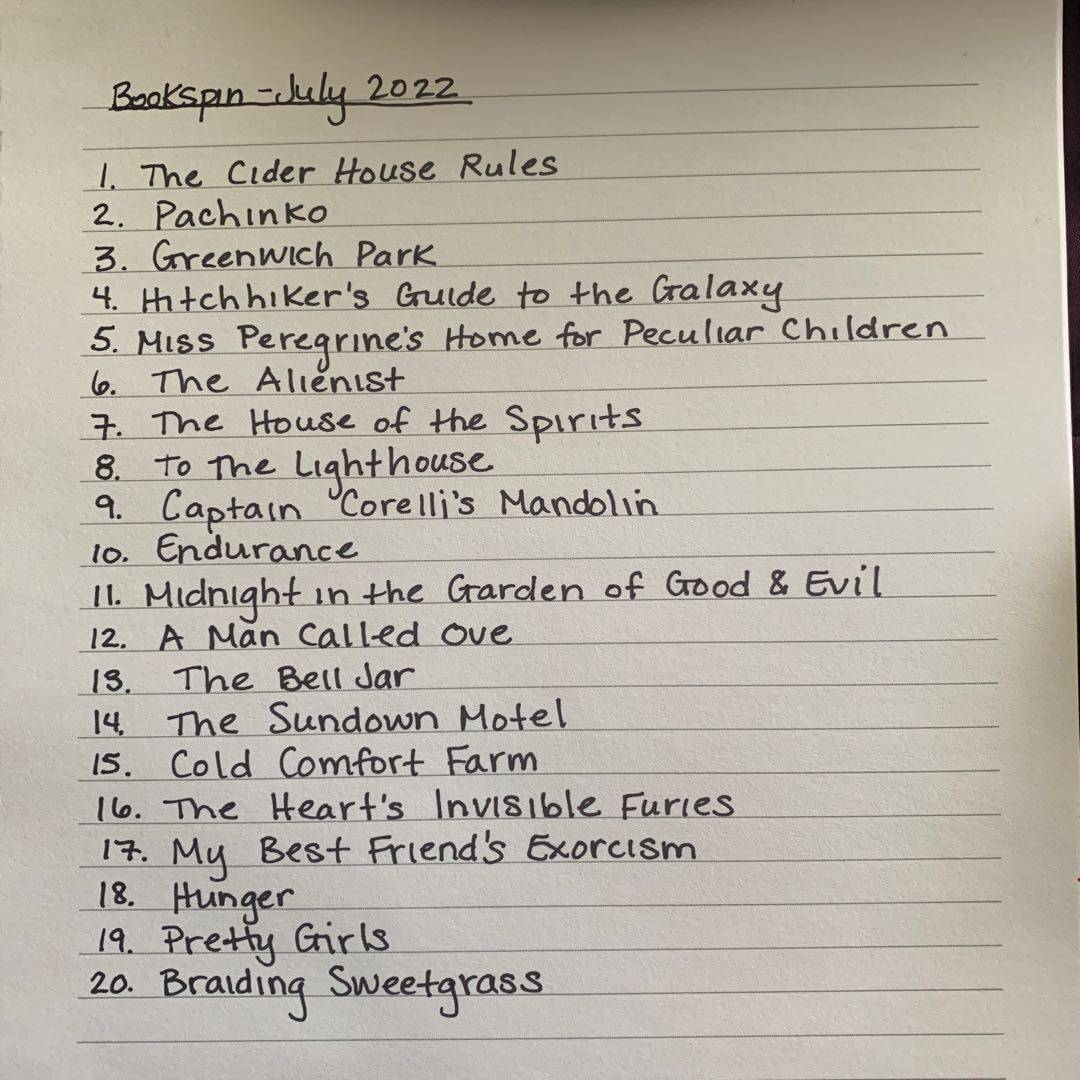 Bookspin - July 2022
1. The Cider House Rules
2. Pachinko
3. Greenwich Park
4. Hitchhiker's Guide to the Galaxy
5. Miss Peregrine's Home for Peculiar Children
6. The Alienist
7. The House of the Spirits
8. To The Lighthouse
9. Captain Corelli's Mandolin
10. Endurance
11. Midnight in the Garden of Good & Evil
12. A Man Called Ove
13. The Bell Jar
14. The Sundown Motel
15. Cold Comfort Farm
16. The Heart's Invisible Furies
17. My Best Friend's Exorcism
18. Hunger
19. Pretty Girls
20. Braiding Sweetgrass